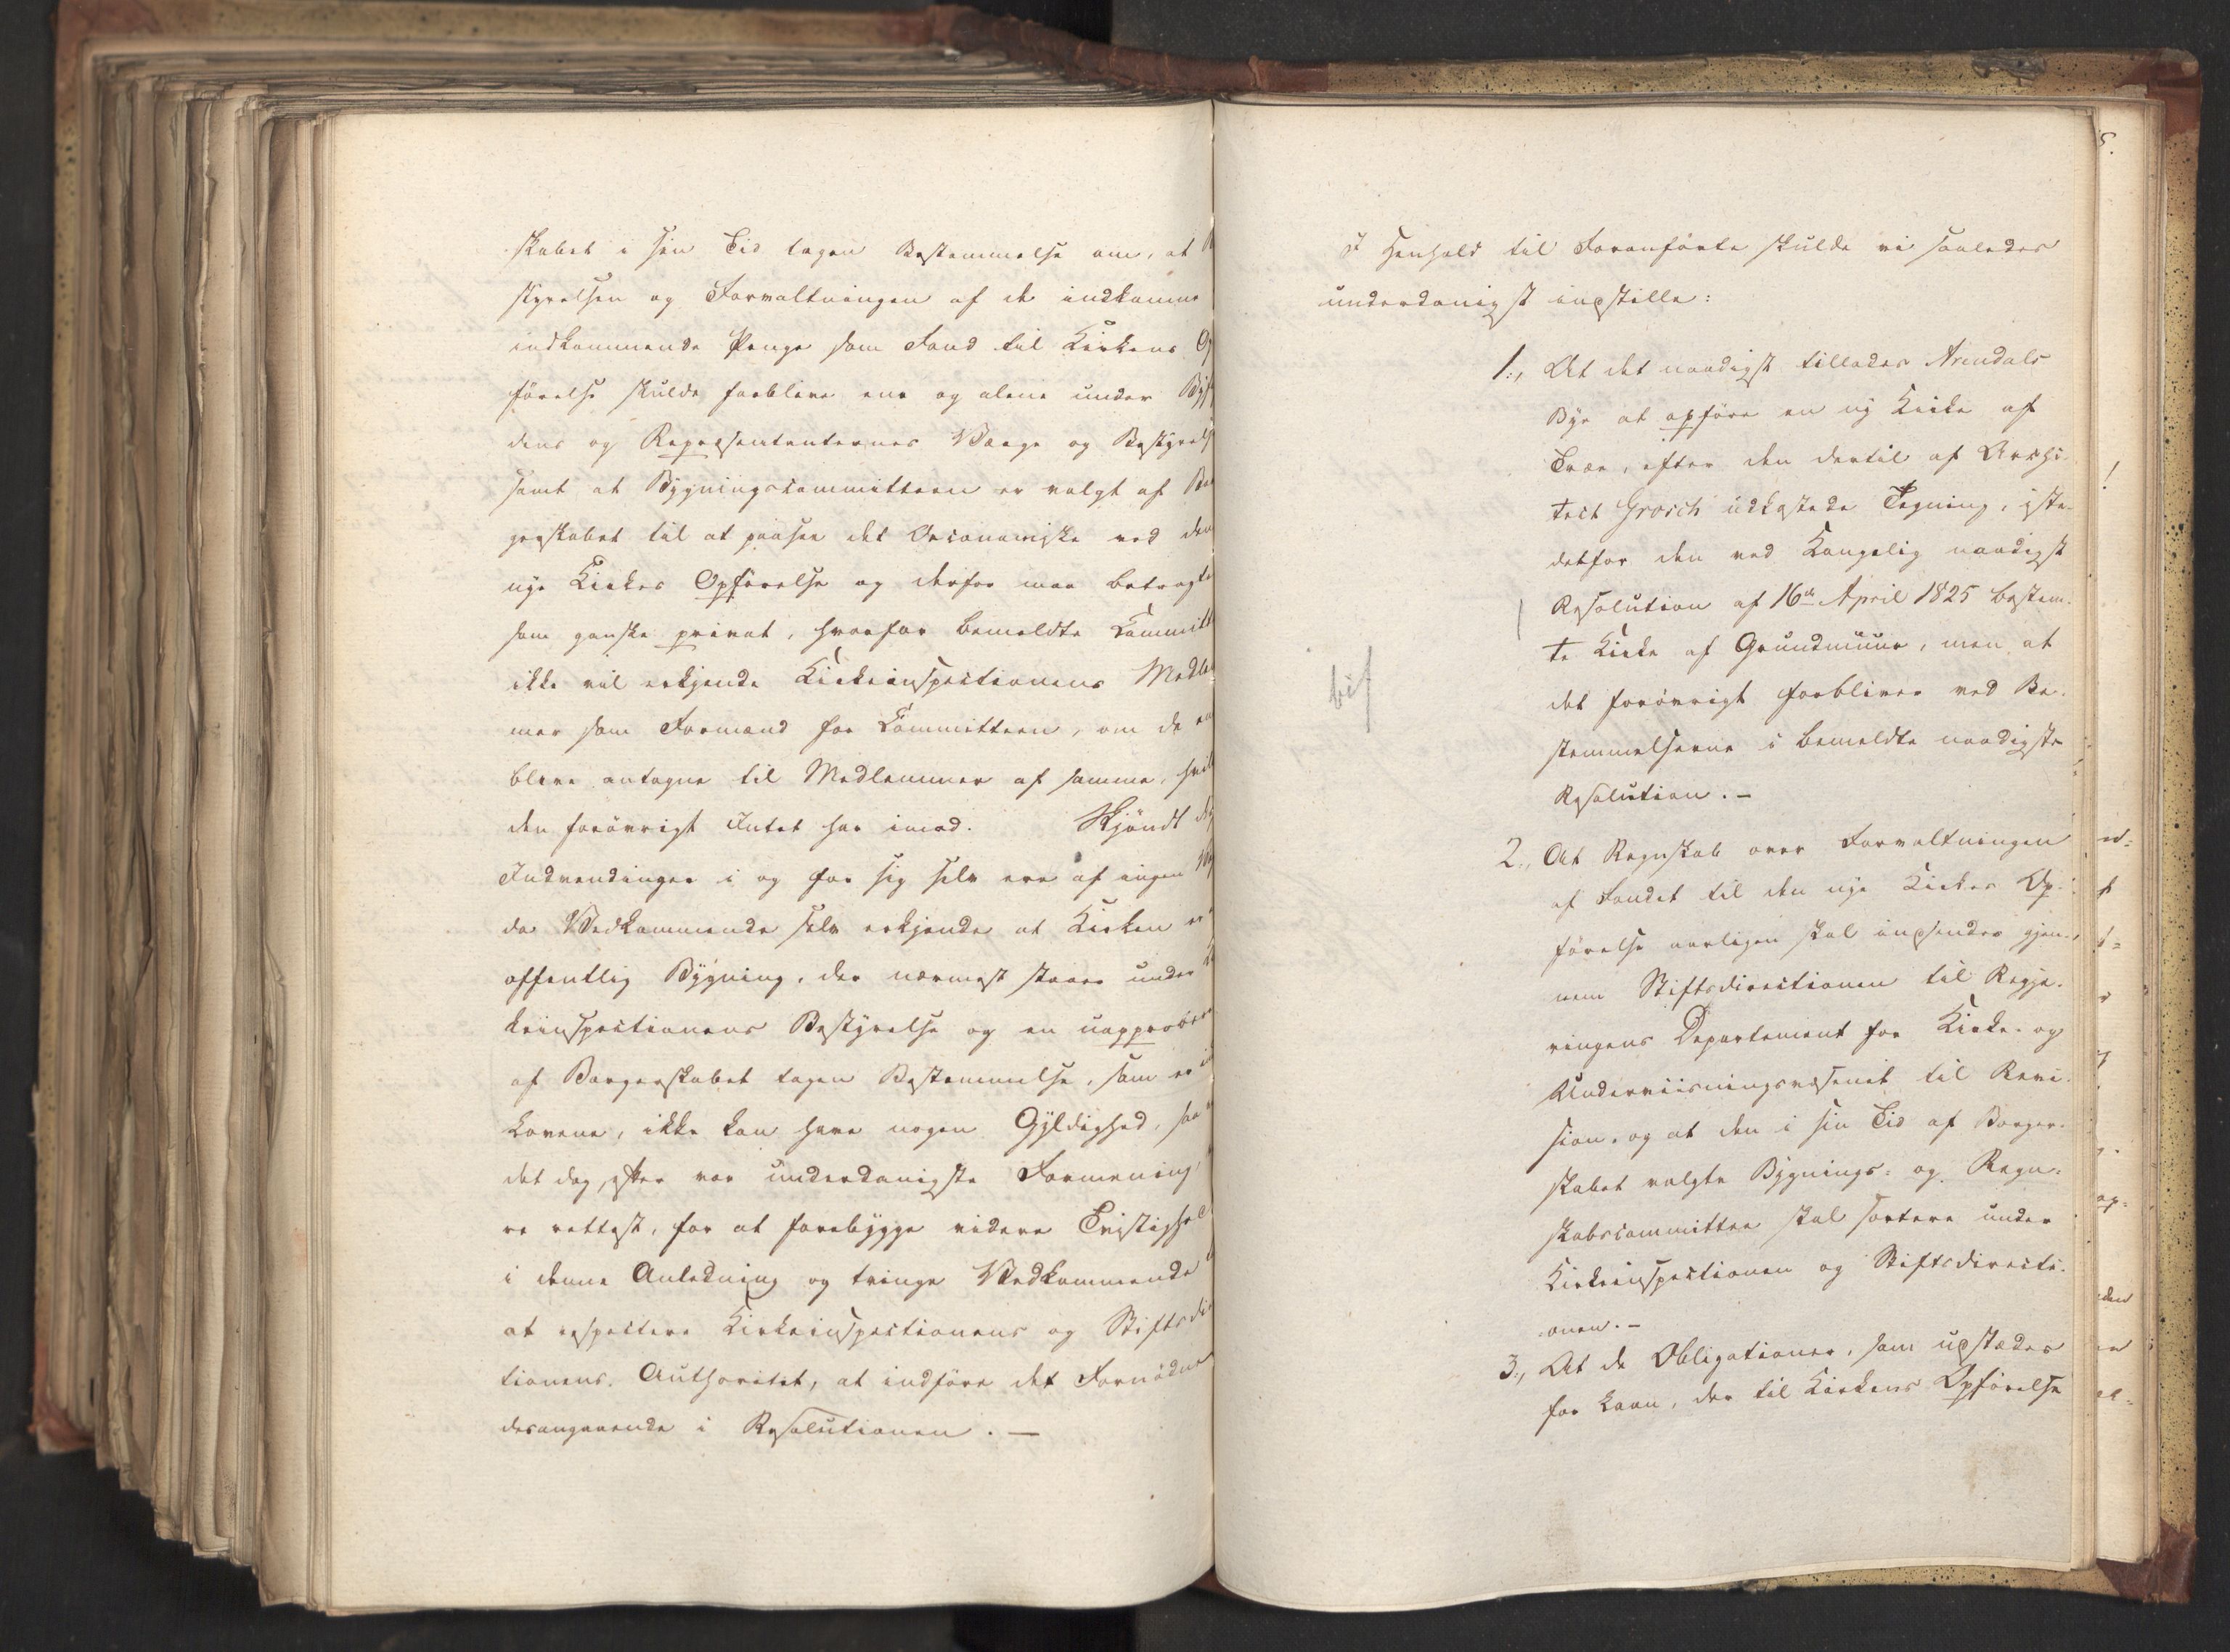 skabet i sin Tid tagen Bestemmelse om, at
styrelsen og Forvaltningen af de indkomne
indkommende Penge som Fond til Kirkens Op
förelse skulde forblive ene og alene under Bÿf
dens og Repræsentanternes Værge og Bestÿrels
samt at Bÿgningscommitteen er valgt af Bor
gerskabet til at paasee det Oeconomiske ved den
nÿe Kirkes Opförelse og derfor maa betragte
som ganske privat, hvorfor bemeldte Committ
ikke vil erkjende Kirkeinspectionens Medle
mer som Formænd for Committeen, om de
blive antagne til Medlemmer af samme, hvil
den forövrigt Intet har imod. Skjöndt di
Indvendinger i og for sig selv ere af ingen
da Vedkommende selv erkjende at Kirken er
offentlig Bÿgning, der nærmest staaer under
keinspectionens Bestÿrelse og en uapprobere
af Borgerskabet tagen Bestemmelse, som er i
Lovene, ikke kan have nogen Gÿldighed, saa
det dog, efter vor underdanigste Formening,
re rettest, for at forebÿgge videre Tvistighed
i denne Anledning og tvinge Vedkommende
at respectere Kirkeinspectionens og Stiftsdi
tionens Authoritet, at indföre det Fornödne
desangaaende i Resolutionen. —
I Henhold til Foranförte skulde vi saaledes
underdanigst indstille:
1., At det naadigst tillades Arendals
Bÿe at opföre en nÿ Kirke af
Træe, efter den dertil af Archi-
tect Grosch udkastede Tegning, iste-
detfor den ved Kongelig naadigst
Resolution af 16de April 1825 bestem-
te Kirke af Grundmuur, men at
det forövrigt forbliver ved Be-
bif
stemmelserne i bemeldte naadigste
Resolution. —
2., At Regnskab over Forvaltningen
af Fondet til den nÿe Kirkes Op-
förelse aarligen skal indsendes gjen-
nem Stiftsdirectionen til Regje-
ringens Departement for Kirke- og
Underviisningsvæsenet til Revi-
sion, og at den i sin Tid af Borger-
skabet valgte Bÿgnings- og Regn-
skabscommittee skal sortere under
Kirkeinspectionen og Stiftsdirecti-
onen. —
3., At de Obligationer, som udstædes
for Laan, der til Kirkens Opförelse